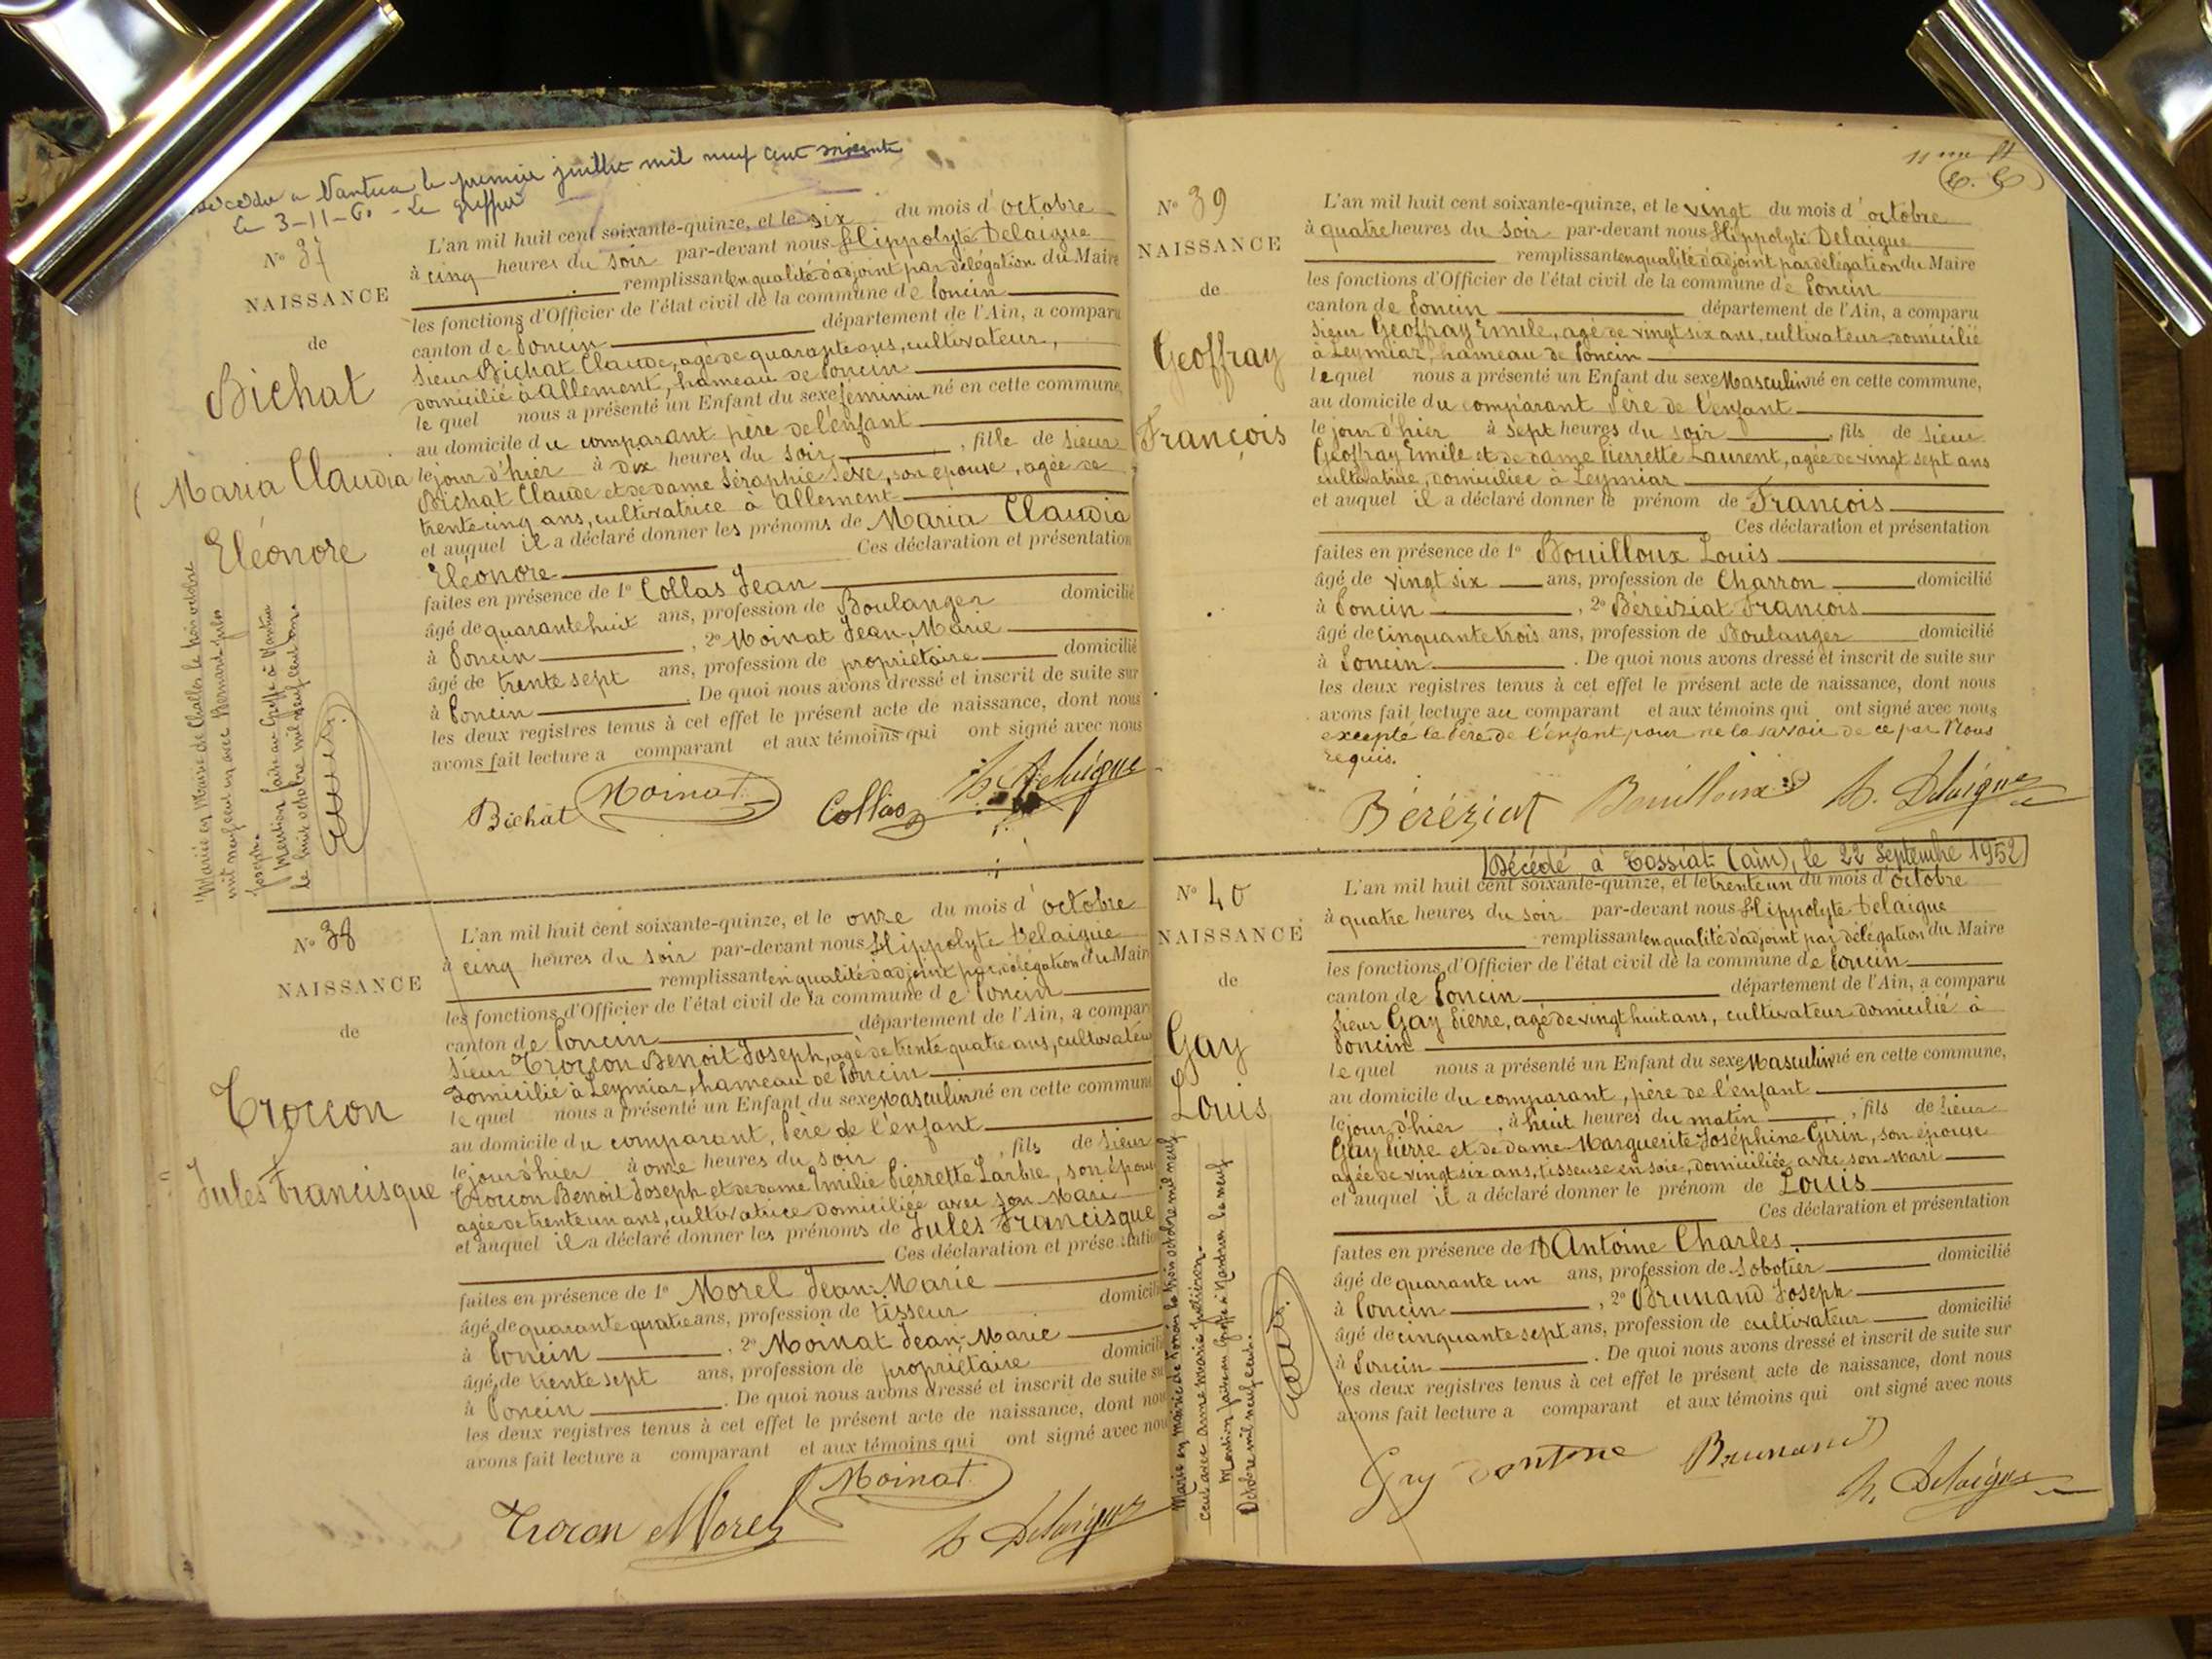 décédée a Nantua le premier juillet mil neuf cent soixante
le 3-11-60 - Le greffier
N° 37
NAISSANCE
de
Bichat
Maria Claudia
Eléonore
Mariée en Mairie de Challes le trois octobre
mil neuf cent un avec Bernard Jules
Joseph.
Mention faite au Greffe à Nantua
le huit octobre mil neuf cent un.
L'an mil huit cent soixante-quinze, et le six du mois d'octobre
à cinq heures du soir par-devant nous Hippolyte Delaigue
remplissant en qualité d'adjoint par délégation du Maire
les fonctions d'Officier de l'état civil de la commune de Poncin
canton de Poncin département de l'Ain, a comparu
Sieur Bichat Claude, agé de quarante ans, cultivateur,
domicilié à Allement, hameau de Poncin
le quel nous a présenté un Enfant du sexe féminin né en cette commune,
au domicile du comparant père de l'enfant
le jour d'hier à dix heures du soir, fille de Sieur
Bichat Claude et de dame Séraphie Sève, son épouse, agée de
trente cinq ans, cultivatrice à Allement
et auquel il a déclaré donner les prénoms de Maria Claudia
Eléonore Ces déclaration et présentation
faites en présence de 1° Collas Jean
âgé de quarante huit ans, profession de Boulanger domicilié
à Poncin, 2° Moinat Jean-Marie
âgé de trente sept ans, profession de propriétaire domicilié
à Poncin. De quoi nous avons dressé et inscrit de suite sur
les deux registres tenus à cet effet le présent acte de naissance, dont nous
avons fait lecture a comparant et aux témoins qui ont signé avec nous
Bichat Moinat Collas h. Delaigue
N° 38
NAISSANCE
de
Troccon
Jules Francisque
L'an mil huit cent soixante-quinze, et le onze du mois d'octobre
à cinq heures du soir par-devant nous Hippolyte Delaigue
remplissant en qualité d'adjoint par délégation du Maire
les fonctions d'Officier de l'état civil de la commune de Poncin
canton de Poncin département de l'Ain, a comparu
Sieur Troccon Benoit Joseph, agé de trente quatre ans, cultivateur
Domicilié à Leymiar, hameau de Poncin
le quel nous a présenté un Enfant du sexe Masculin né en cette commune
au domicile du comparant, Père de l'enfant
le jour d'hier à onze heures du soir, fils de Sieur
Troccon Benoit Joseph et de dame Emilie Pierrette Larbre, son épouse
agée de trente un ans, cultivatrice domiciliée avec son Mari
et auquel il a déclaré donner les prénoms de Jules Francisque
Ces déclaration et présentation
faites en présence de 1° Morel Jean-Marie
âgé de quarante quatre ans, profession de tisseur domicilié
à Poncin, 2° Moinat Jean-Marie
âgé de trente sept ans, profession de propriétaire domicilié
à Poncin. De quoi nous avons dressé et inscrit de suite sur
les deux registres tenus à cet effet le présent acte de naissance, dont nous
avons fait lecture a comparant et aux témoins qui ont signé avec nous
Moinat
Trocon Morel h Delaigue
11me ft
N° 39
NAISSANCE
de
Geoffray
François
L'an mil huit cent soixante-quinze, et le vingt du mois d'octobre
à quatre heures du soir par-devant nous Hippolyte Delaigue
remplissant en qualité d'adjoint par délégation du Maire
les fonctions d'Officier de l'état civil de la commune de Poncin
canton de Poncin département de l'Ain, a comparu
Sieur Geoffray Emile, agé de vingt six ans, cultivateur domicilié
à Leymiar, hameau de Poncin
lequel nous a présenté un Enfant du sexe Masculin né en cette commune,
au domicile du comparant Père de l'enfant
le jour d'hier à sept heures du soir, fils de sieur
Geoffray Emile et de dame Pierrette Laurent, agée de vingt sept ans
cultivatrice, domiciliée à Leymiar
et auquel il a déclaré donner le prénom de François
Ces déclaration et présentation
faites en présence de 1° Bouilloux Louis
âgé de vingt six ans, profession de Charron domicilié
à Poncin, 2° Béreiziat François
âgé de cinquante trois ans, profession de Boulanger domicilié
à Poncin. De quoi nous avons dressé et inscrit de suite sur
les deux registres tenus à cet effet le présent acte de naissance, dont nous
avons fait lecture au comparant et aux témoins qui ont signé avec nous
excepté le Père de l'enfant pour ne la savoir de ce par Nous
requis.
Béréziat Bouilloux h. Delaigue
Décédé à Tossiat (ain), le 22 Septembre 1952
N° 40
NAISSANCE
de
Gay
Louis
Marié en Mairie de le trois octobre mil neuf
cent avec Anne Marie
Mention faite au Greffe à Nantua le neuf
Octobre mil neuf cent.
L'an mil huit cent soixante-quinze, et le trente un du mois d'octobre
à quatre heures du soir par-devant nous Hippolyte Delaigue
remplissant en qualité d'adjoint par délégation du Maire
les fonctions d'Officier de l'état civil de la commune de Poncin
canton de Poncin département de l'Ain, a comparu
Sieur Gay Pierre, agé de vingt huit ans, cultivateur domicilié à
Poncin
lequel nous a présenté un Enfant du sexe Masculin né en cette commune,
au domicile du comparant, père de l'enfant
le jour d'hier, à huit heures du matin, fils de Sieur
Gay Pierre et de dame Marguerite Joséphine Girin, son épouse
agée de vingt six ans, tisseuse en soie, domiciliée avec son Mari
et auquel il a déclaré donner le prénom de Louis
Ces déclaration et présentation
faites en présence de 1° Antoine Charles
âgé de quarante un ans, profession de Sabotier domicilié
à Poncin, 2° Brunand Joseph
âgé de cinquante sept ans, profession de cultivateur domicilié
à Poncin. De quoi nous avons dressé et inscrit de suite sur
les deux registres tenus à cet effet le présent acte de naissance, dont nous
avons fait lecture a comparant et aux témoins qui ont signé avec nous
Gay antoine Brunand
h. Delaigue